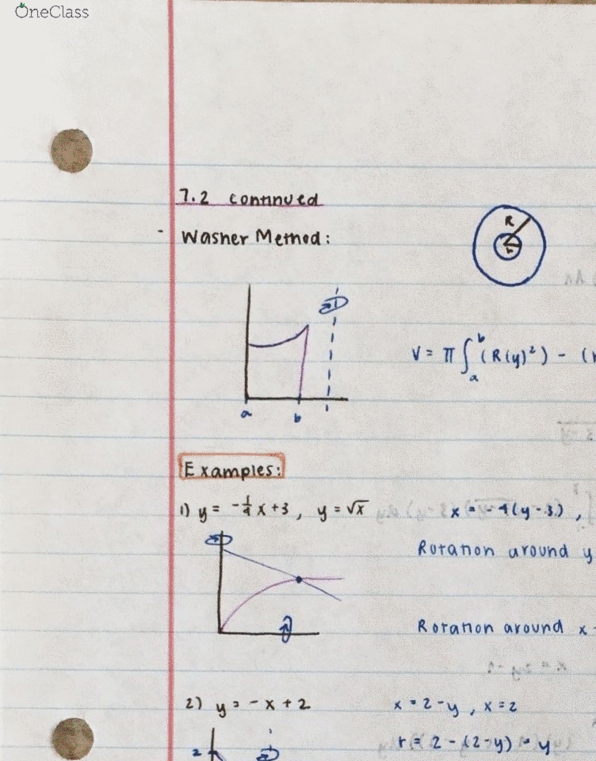 OneClass
7.2 continued
- Washer Method:
R
r
a b
V = π∫ₐᵇ (R(y)²) - (
Examples:
1) y = -1/4 x + 3, y = √x x = -4(y-3),
Rotation around y
Rotation around x
2) y = -x + 2 x = 2-y, x = 2
2 r = 2 - (2-y) = y